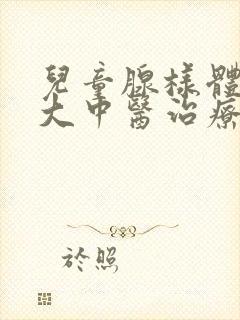 兒童腺樣體
大中醫治療
於照